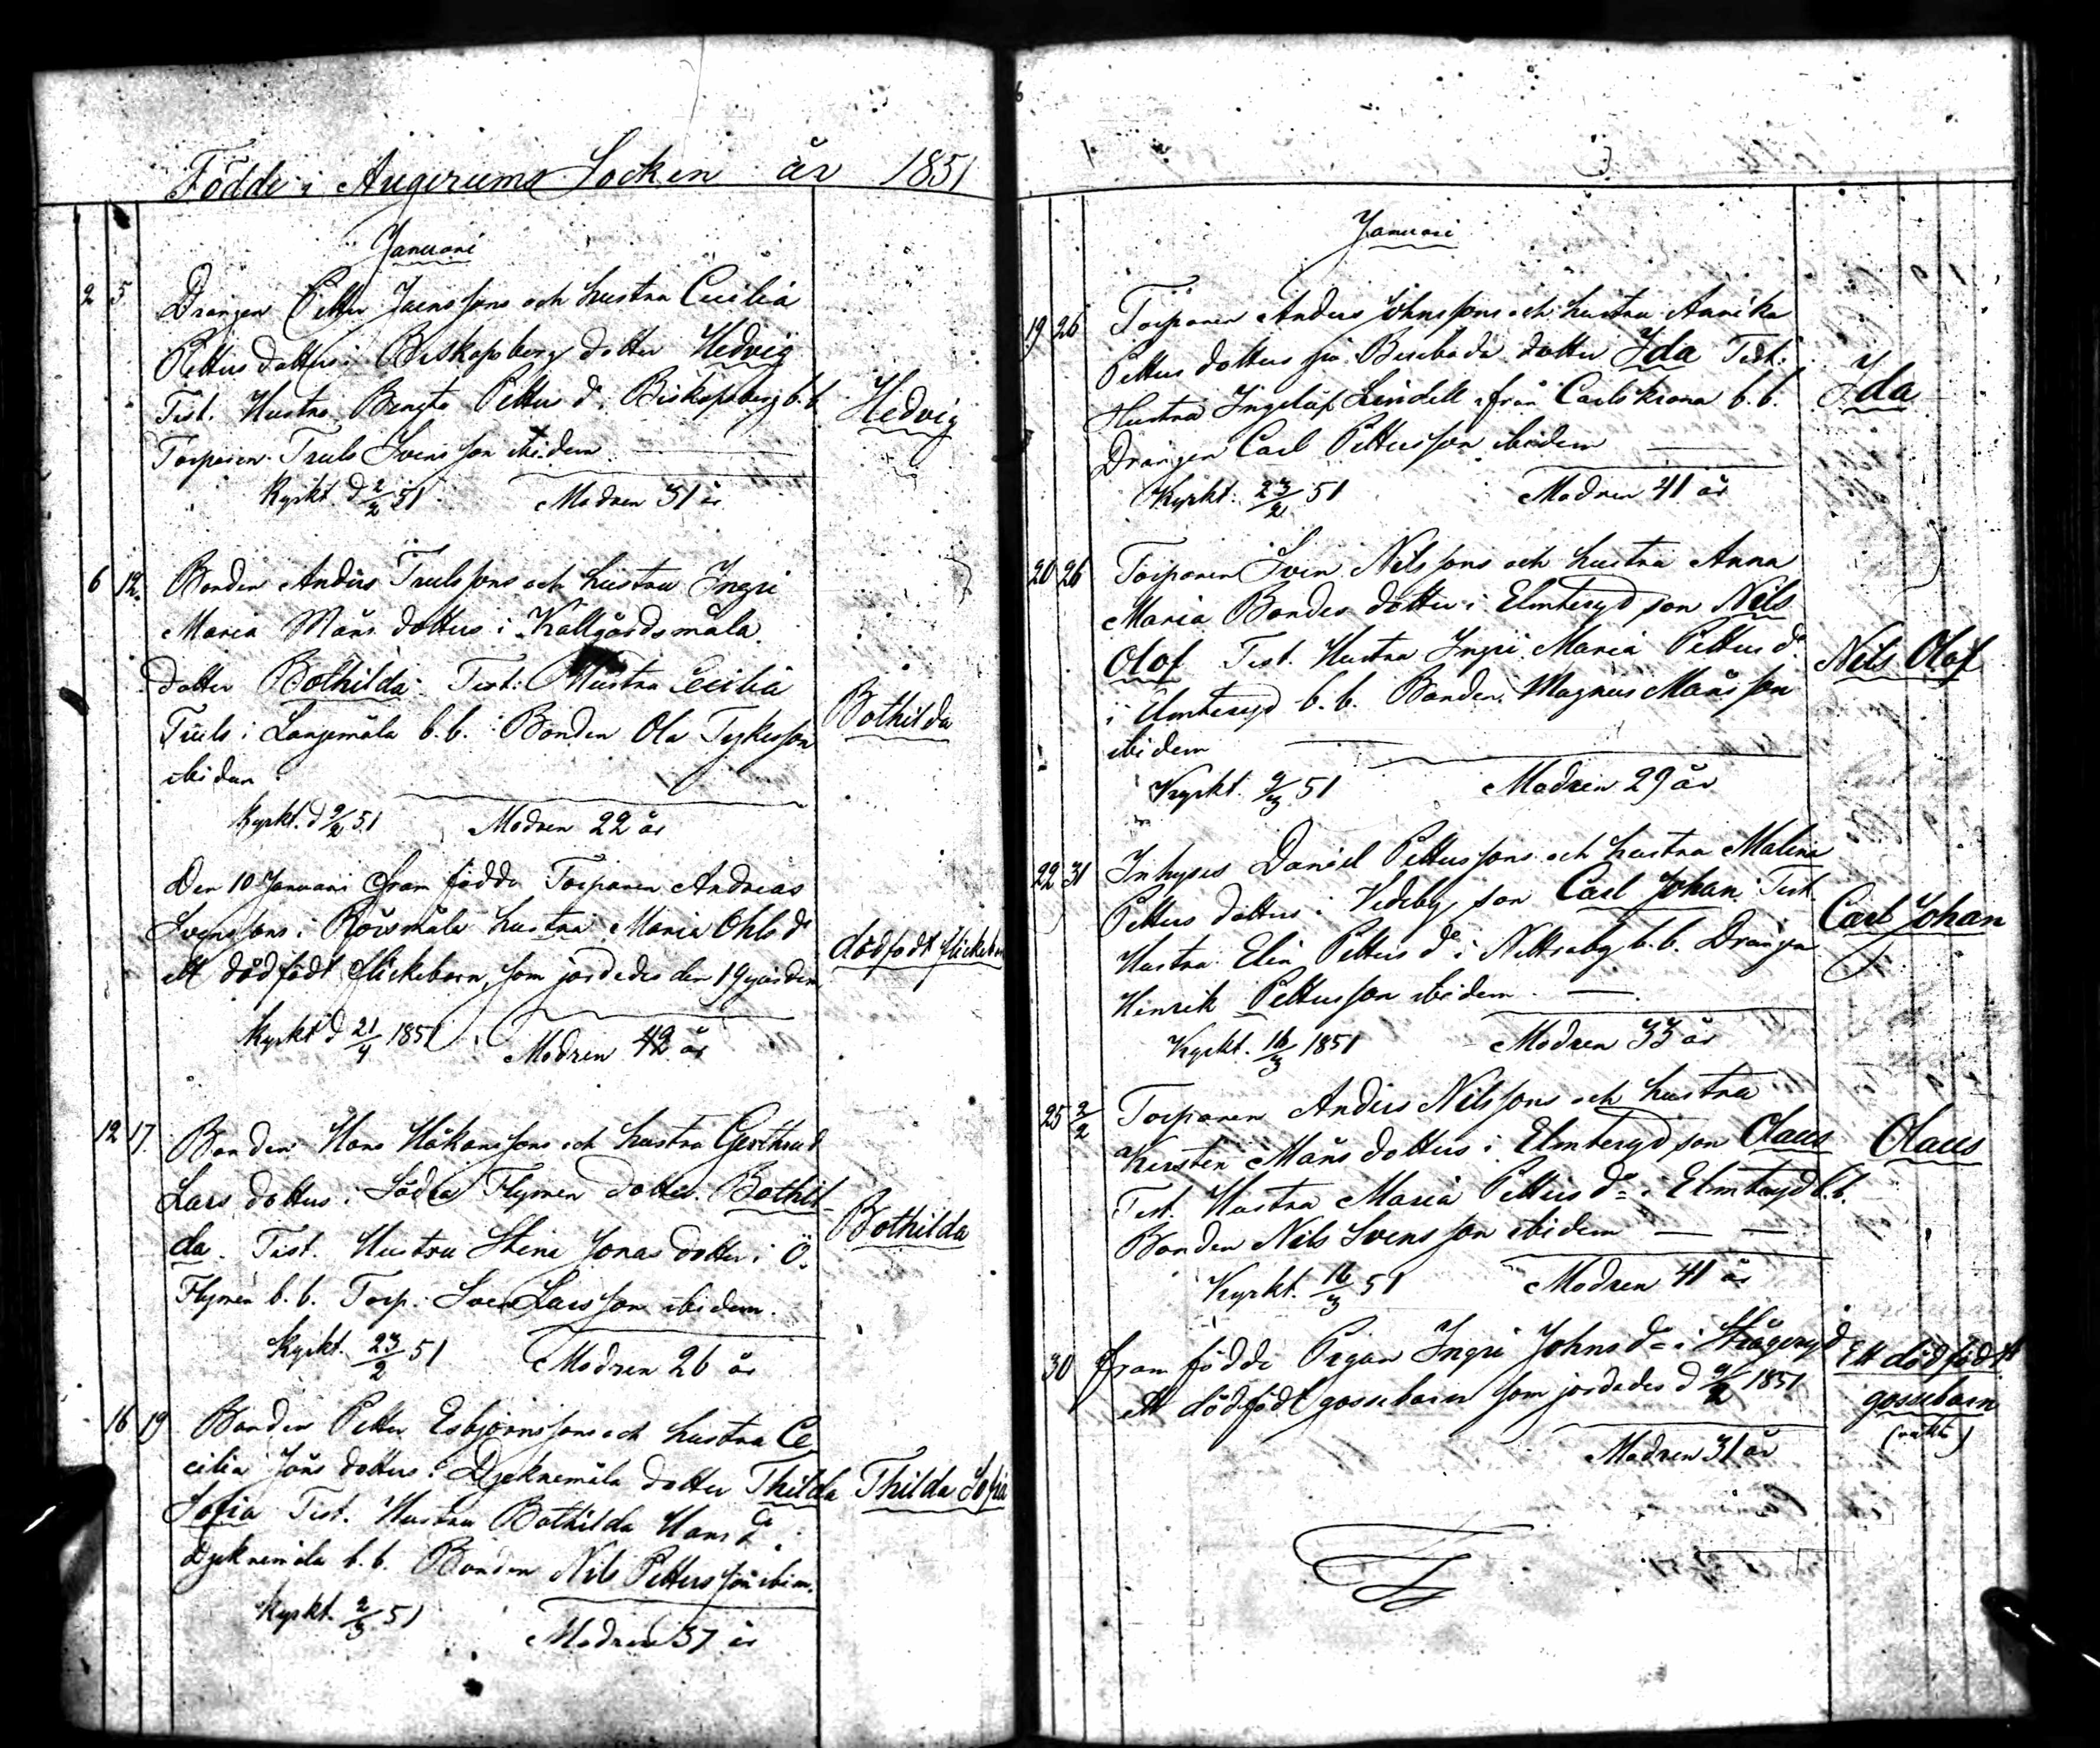 Födde i Augerums Socken år 1851
Januari
2 5 Drängen Petter Jaenssons och hustru Cecilia
Petters dotters i Biskopsberg dotter Hedvig
Test. Hustru Bengta Petters d. Biskopsberg b.b.
Hedvig
Torparen Truls Svensson ibidem
Kyrkt. d 2/2 51 Modren 31 år
6 12. Bonden Anders Trulssons och hustru Ingri
Maria Måns dotters i Källgårdsmåla
dotter Bothilda. Test: Hustru Cecilia
Truls i Långemåla b.b. Bonden Ola Tykesson
Bothilda
ibidem
Kyrkt. d 9/2 51 Modren 22 år
Den 10 Januari fram födde Torparen Andreas
Svenssons i Rörsmåla hustru Maria Ohls dr
ett dödfödt flickebarn, som jordades den 19 januari
dödfödt flickebarn
Kyrkt d 21/4 1851 Modren 42 år
12 17. Bonden Hans Håkanssons och hustru Gerthrud
Lars dotters i Södra Flymen dotter Bothil-
da. Test. Hustru Stina Jonas dotter i Ö.
Bothilda
Flymen b.b. Torp. Sven Larsson ibidem.
Kyrkt. 23/2 51 Modren 26 år
16 19 Bonden Petter Esbjörnssons och hustru Ce
cilia Jöns dotters i Djeknemåla dotter Thilda
Thilda Sofia
Sofia Test. Hustru Bothilda Hans d. i
Djeknemåla b.b. Bonden Nils Pettersson ibm.
Kyrkt. 2/3 51 Modren 37 år
Januari
19 26 Torparen Anders Johnssons och hustru Annika
Petters dotters på Bereboda dotter Ida Test:
Hustru Ingelöf Lindell från Carlskrona b.b.
Ida
Drängen Carl Pettersson ibidem
Kyrkt. 23/2 51 Modren 41 år
20 26 Torparen Sven Nilssons och hustru Anna
Maria Bondes dotter i Elmteryd son Nils
Olof Test. Hustru Ingri Maria Petters dr
Nils Olof
i Elmteryd b.b. Bonden Magnus Månsson
ibidem
Kyrkt. 9/3 51 Modren 29 år
22 31 Inhyses Daniel Petterssons och hustru Malena
Petters dotters i Vedeby son Carl Johan Test.
Carl Johan
Hustru Elin Petters dr i Nettraby b.b. Drängen
Hinrik Pettersson ibidem.
Kyrkt. 16/3 1851 Modren 33 år
25 2/2 Torparen Anders Nilssons och hustru
Kersten Måns dotters i Elmteryd son Olaus
Olaus
Test. Hustru Maria Petters dr i Elmteryd b.b.
Bonden Nils Svensson ibidem
Kyrkt. 16/3 51 Modren 41 år
30 fram födde Pigan Ingri Johns dr i Strågeryd
ett dödfödt gossebarn som jordades d 9/2 1851
Ett dödfödt
gossebarn
Modren 31 år